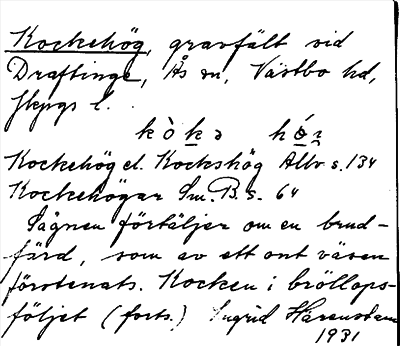 Kockehög, gravfält vid
Draftinge, Ås sn, Västbo hd,
Jkpgs l.
kòkə hǿ
Kockehög el. Kockshög Allv s. 134
Kockehögar Sm. B. s. 64
Sägnen förtäljer om en brud-
färd, som av ett ont väsen
förstenats. Kocken i bröllops-
följet (forts.) Ingrid Härenstam
1931